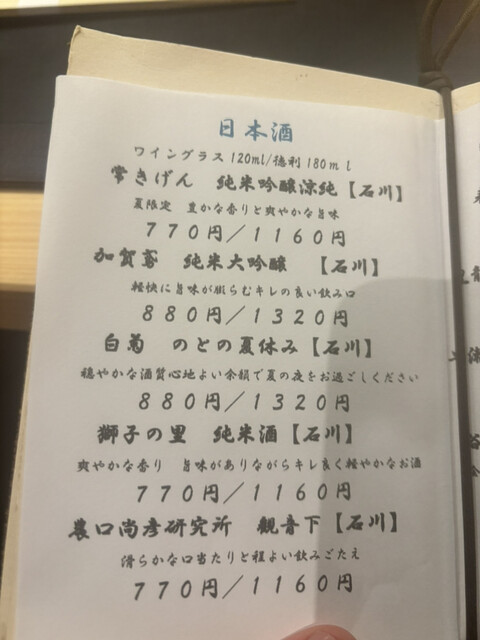 日本酒
ワイングラス120ml/徳利180ml
常きげん 純米吟醸涼純【石川】
夏限定 豊かな香りと爽やかな旨味
770円／1160円
加賀鳶 純米大吟醸 【石川】
軽快に旨味が膨らむキレの良い飲み口
880円／1320円
白菊 のとの夏休み【石川】
穏やかな酒質心地よい余韻で夏の夜をお過ごしください
880円／1320円
獅子の里 純米酒【石川】
爽やかな香り 旨味がありながらキレ良く軽やかなお酒
770円／1160円
農口尚彦研究所 観音下【石川】
滑らかな口当たりと程よい飲みごたえ
770円／1160円